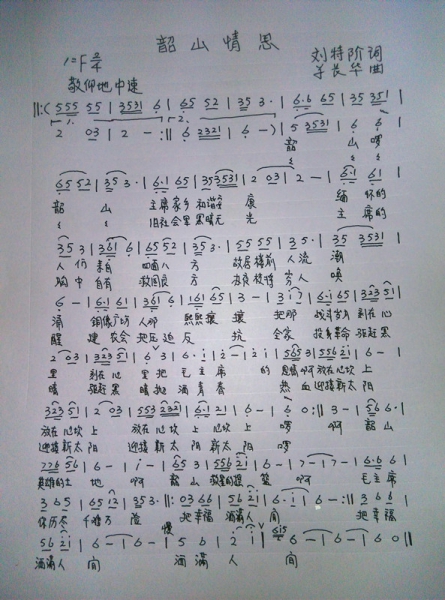 韶山情思
1=F 2/4
刘特阶 词
长华 曲
敬仰地 中速
||:( 555 55 | 3531 6 | 65 52 | 35 3· | 6·6 65 | 35 351 |
2 03 | 2 - :|| 6 2321 | 6 - ) | 5 3531 | 6 6 |
韶 山 啰
6552 | 35 3· | 6·1 65 | 353531 | 2 03 | 2 - | 6·1 61 |
韶 山 主席家乡 和谐 康 缅怀的
旧社会里 黑暗无 光 主席的
35 3 | 361 6 | 65 52 | 35 3· | 55 55 | 35· | 35 3531 |
人们 来自 四面八 方 故居楼前 人流 潮
胸中自有 救国良 方 穷人 唤
6 - | 6·1 61 | 361 6 | 161 65 | 3 - | 3 i7 | 6·i 65 | 323 51 |
涌 铜像广场 人那 熙熙攘 攘 把那 战斗岁月 刻在心
醒 建农会 把压迫 反 抗 全家 投身革命 驱赶黑
2 03 | 323 51 | 6 3 | 6· i | 2 - | 2 - | 565 3 | 556 2i | 6 - |
里 刻在心 里 把 毛 主 席 的 恩情啊 放在心坎 上
暗 驱赶黑 暗 抛 洒 青 春 热 血 迎接新太 阳
323 51 | 2 03 | 553 232 | 6·1 21 | 6 - | 6 0 :|| 3 - | 56 6· |
放在心坎 上 放在心坎 上 心坎 上 啰 啊 韶山
迎接新太 阳 迎接新太 阳 新太 阳 啰
776 56 | 6 - | i - | 65 3 | 556 2i | 6 - | 7 - | 7 - | 6·6 6 |
英雄的土 地 啊 韶山 啊 毛主席
3 65 | 65 12 | 35 3· ||: 03 66 | 56 2i | 6· i | 6 - :|| 3 66 |
你历尽 千难万 险 把幸福 洒满人 间 把幸福
56 2i | 6 - | 6 - | 5 6 | 2 i | 6 - | 6 - | 6 - | 6 0 ||
慢
洒满人 间 洒 满 人 间